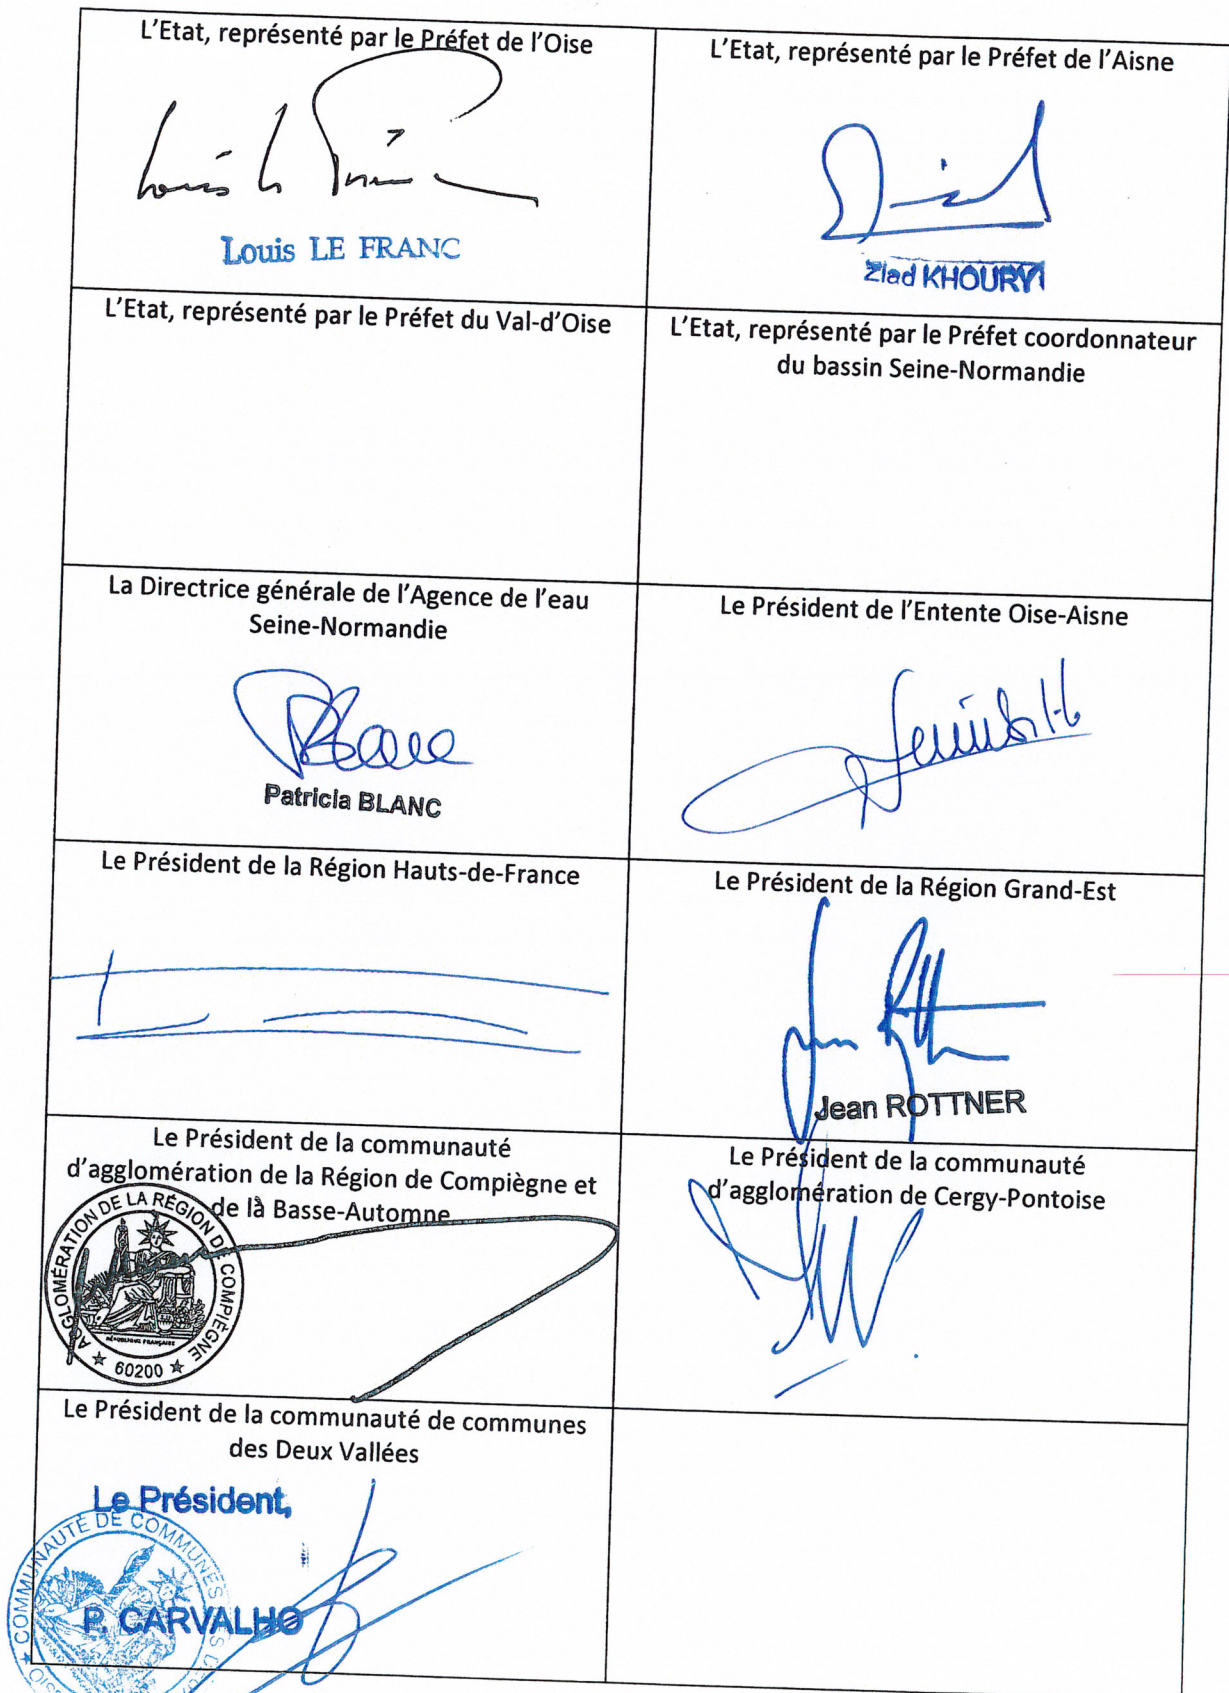 L'Etat, représenté par le Préfet de l'Oise
Louis LE FRANC
L'Etat, représenté par le Préfet de l'Aisne
Ziad KHOURY
L'Etat, représenté par le Préfet du Val-d'Oise
L'Etat, représenté par le Préfet coordonnateur
du bassin Seine-Normandie
La Directrice générale de l'Agence de l'eau
Seine-Normandie
Patricia BLANC
Le Président de l'Entente Oise-Aisne
Le Président de la Région Hauts-de-France
Le Président de la Région Grand-Est
Jean ROTTNER
Le Président de la communauté
d'agglomération de la Région de Compiègne et
de la Basse-Automne
AGGLOMÉRATION DE LA RÉGION DE COMPIÈGNE
RÉPUBLIQUE FRANÇAISE
60200
Le Président de la communauté
d'agglomération de Cergy-Pontoise
Le Président de la communauté de communes
des Deux Vallées
Le Président,
COMMUNAUTÉ DE COMMUNES
P. CARVALHO